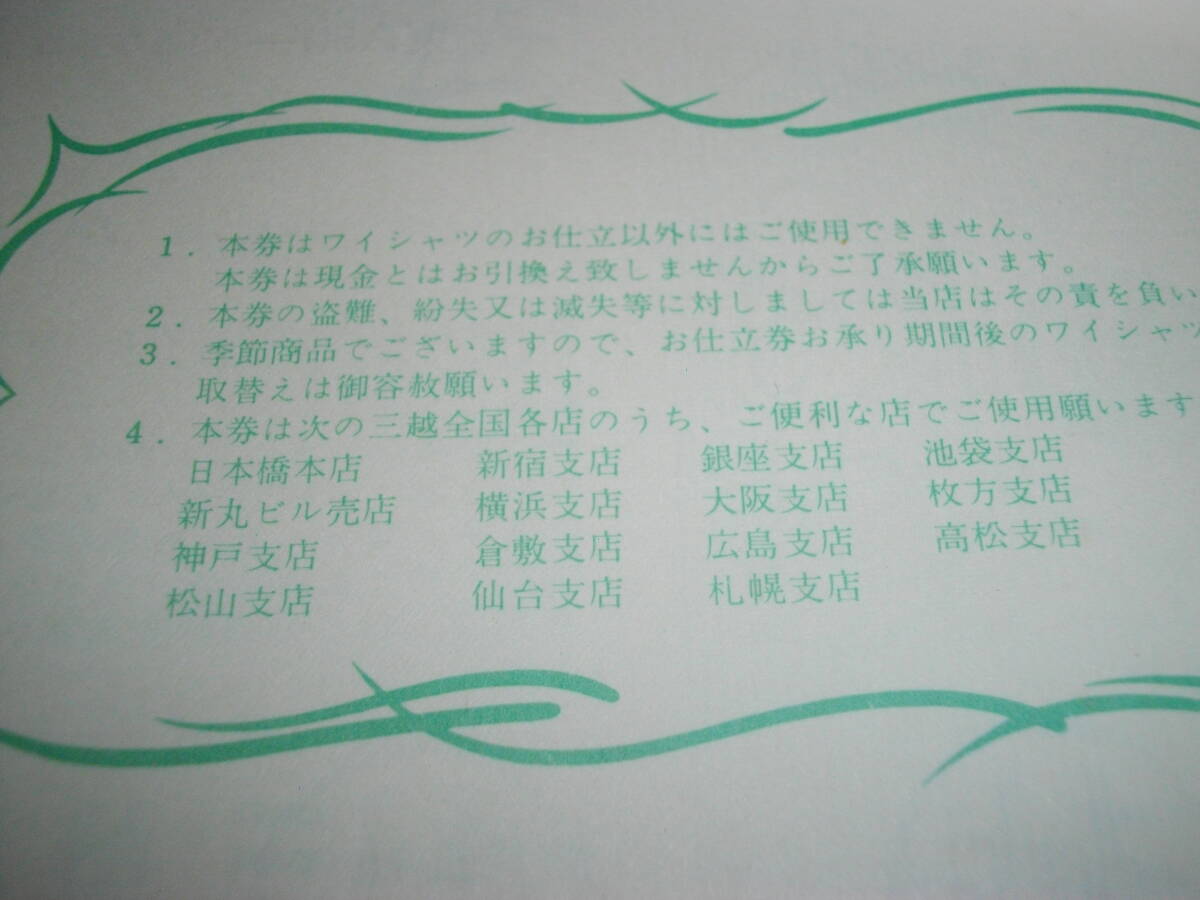 1．本券はワイシャツのお仕立以外にはご使用できません。
本券は現金とはお引換え致しませんからご了承願います。
2．本券の盗難、紛失又は滅失等に対しましては当店はその責を負い
3．季節商品でございますので、お仕立券お承り期間後のワイシャツ
取替えは御容赦願います。
4．本券は次の三越全国各店のうち、ご便利な店でご使用願います
日本橋本店 新宿支店 銀座支店 池袋支店
新丸ビル売店 横浜支店 大阪支店 枚方支店
神戸支店 倉敷支店 広島支店 高松支店
松山支店 仙台支店 札幌支店